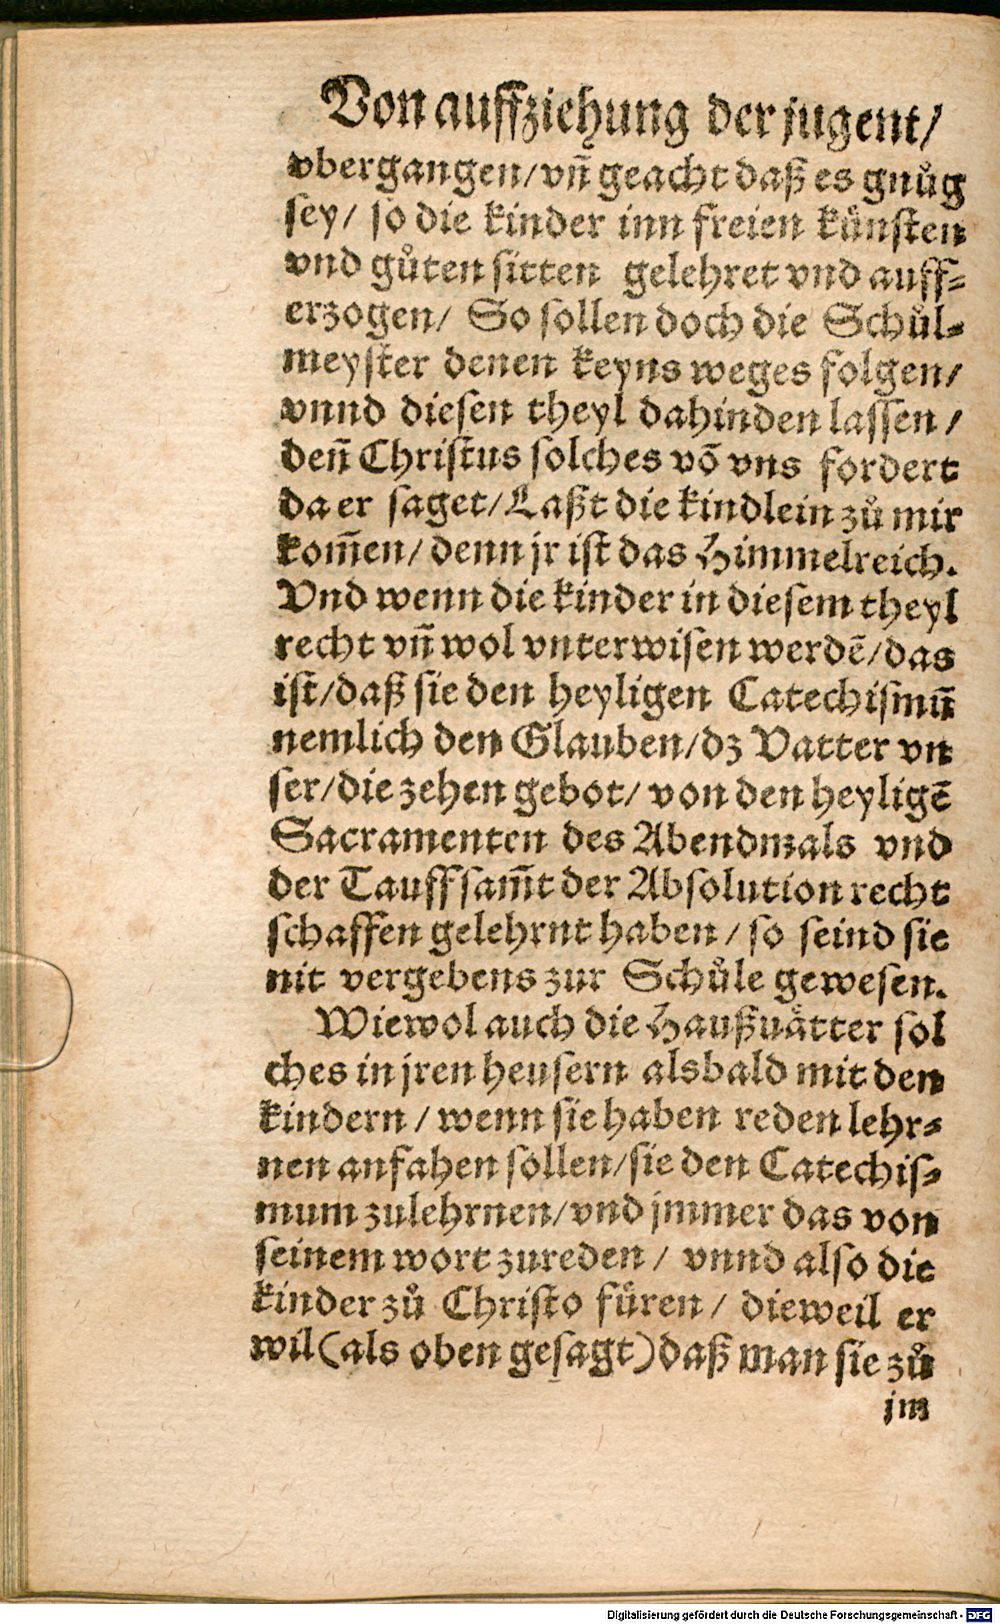 Von auffziehung der jugent/
vbergangen/vñ geacht daß es gnůg
sey/ so die kinder inn freien künsten
vnd gůten sitten gelehret vnd auff-
erzogen/ So sollen doch die Schůl-
meyster denen keyns weges folgen/
vnnd diesen theyl dahinden lassen/
deñ Christus solches võ vns fordert
da er saget/Laßt die kindlein zů mir
kom̃en/denn jr ist das Himmelreich.
Vnd wenn die kinder in diesem theyl
recht vñ wol vnterwisen werdẽ/das
ist/daß sie den heyligen Catechismũ
nemlich den Glauben/dz Vatter vn
ser/die zehen gebot/von den heyligẽ
Sacramenten des Abendmals vnd
der Tauff sam̃t der Absolution recht
schaffen gelehrnt haben/so seind sie
nit vergebens zur Schůle gewesen.
Wiewol auch die Haußvätter sol
ches in jren heusern alsbald mit den
kindern/wenn sie haben reden lehr-
nen anfahen sollen/sie den Catechis-
mum zulehrnen/vnd jmmer das von
seinem wort zureden/ vnnd also die
kinder zů Christo füren/ dieweil er
wil(als oben gesagt)daß man sie zů
jm
Digitalisierung gefördert durch die Deutsche Forschungsgemeinschaft - DFG